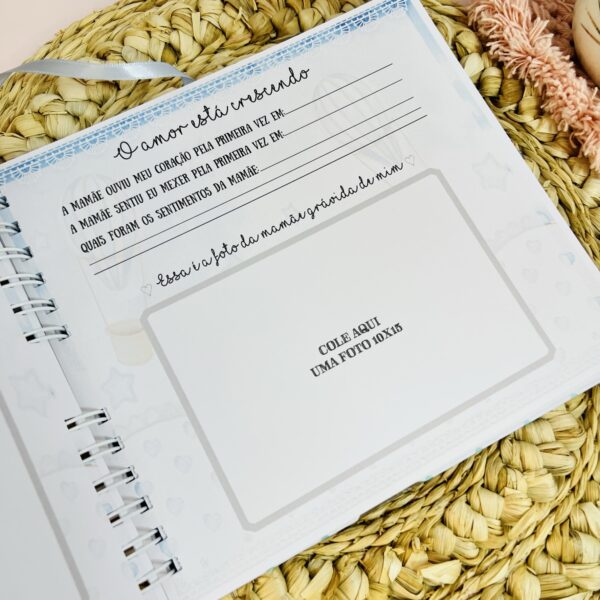 O amor está crescendo
A MAMÃE OUVIU MEU CORAÇÃO PELA PRIMEIRA VEZ EM:
A MAMÃE SENTIU EU MEXER PELA PRIMEIRA VEZ EM:
QUAIS FORAM OS SENTIMENTOS DA MAMÃE:
Essa é a foto da mamãe grávida de mim
COLE AQUI
UMA FOTO 10X15